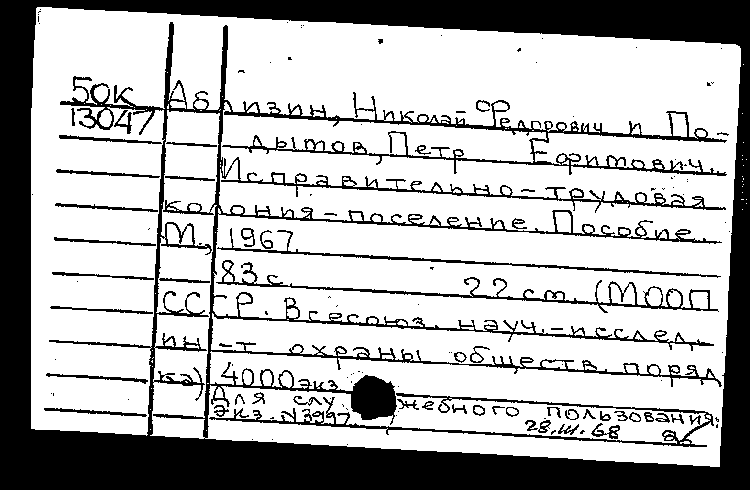 50К
13047
Аблизин, Николай Федорович и По-
дытов, Петр Ефимович.
Исправительно-трудовая
колония-поселение. Пособие.
М., 1967.
83 с. 22 см. (МООП
СССР. Всесоюз. науч.-исслед.
ин-т охраны обществ. поряд
ка) 4000 экз
Для служебного пользования.
Экз. N 3997.
28.III.68